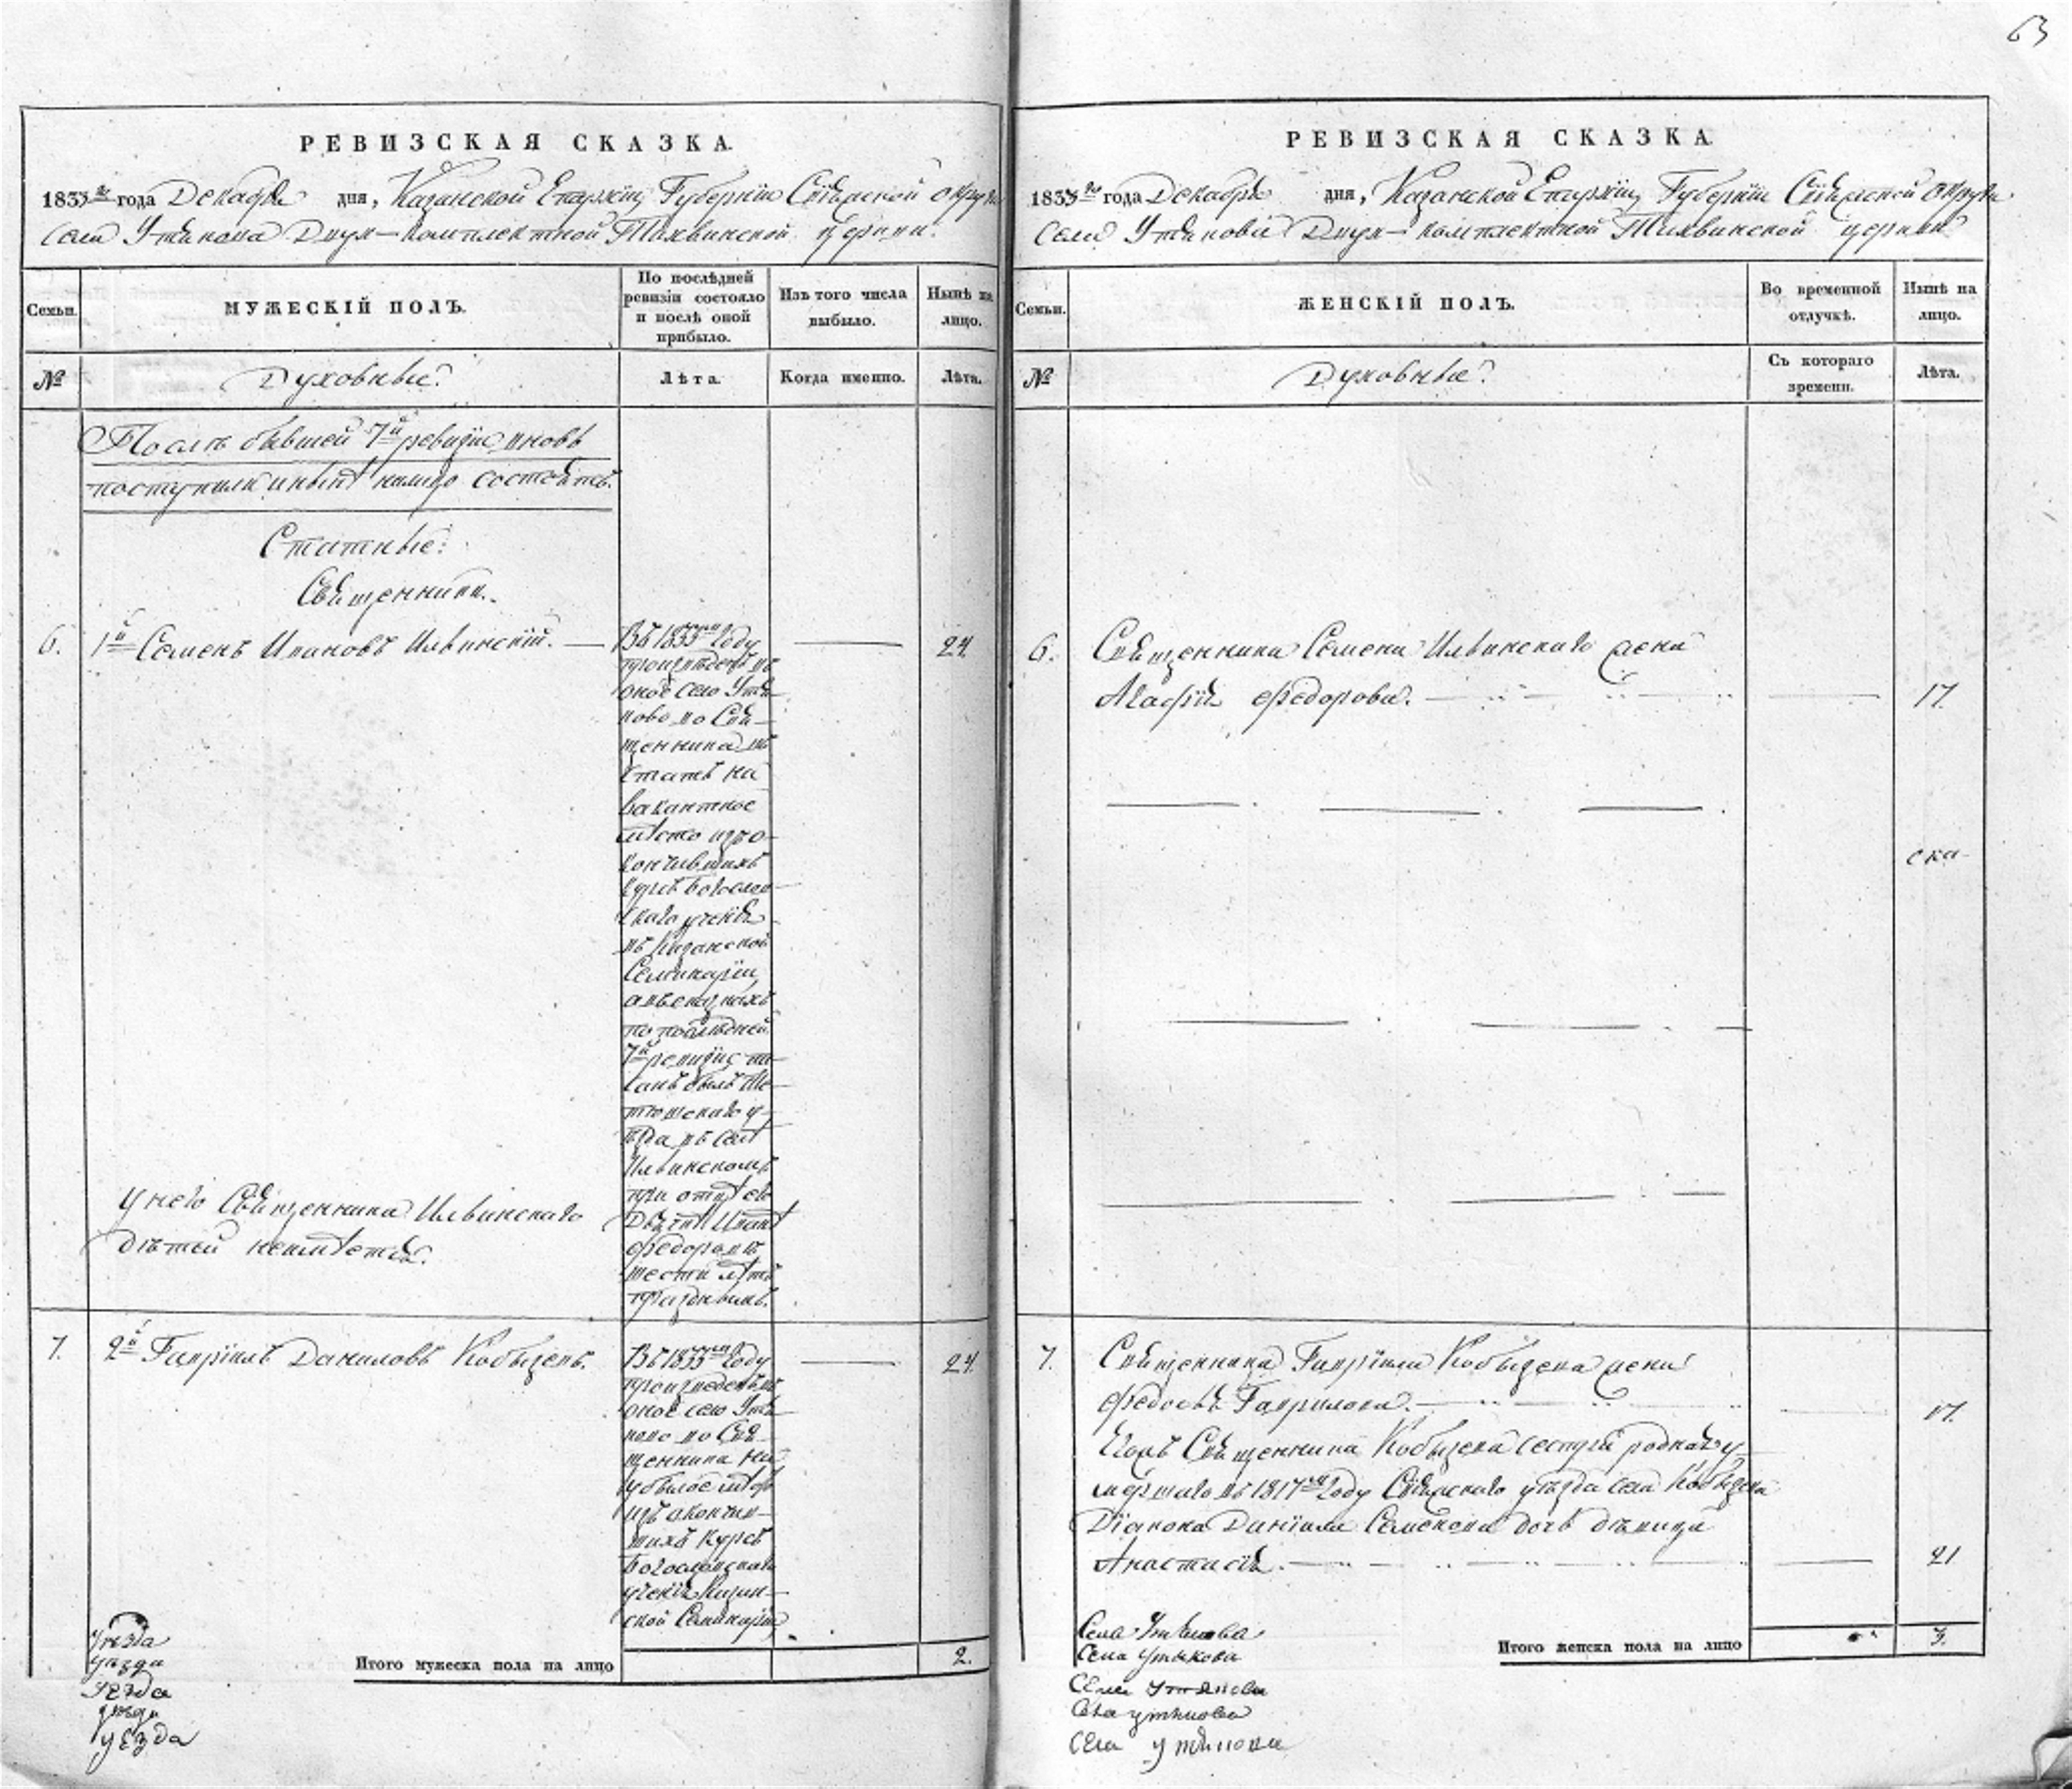 63
РЕВИЗСКАЯ СКАЗКА.
1833го года Декабря дня, Казанской Епархіи, Губерніи Свіяжской округи
села Утякова Двух-комплектной Тихвинской церкви.
Семьи.
МУЖЕСКІЙ ПОЛЪ.
По послѣдней ревизіи состояло и послѣ оной прибыло.
Изъ того числа выбыло.
Нынѣ на лицо.
№
Духовные.
Лѣта.
Когда именно.
Лѣта.
Послѣ бывшей 7й ревизіи вновь
поступили и нынѣ налицо состоятъ.
Статные:
Священники.
6.
1й Семенъ Ивановъ Ильвинскій.
24.
Въ 1833м Году
произведенъ въ
оное село Утя-
ково во Свя-
щенника въ
Статъ на
вакантное
мѣсто изъ о-
кончившихъ
Курсъ Богослов-
скаго ученія
въ Казанской
Семинаріи,
по послѣдней
7й ревизіи пи-
санъ былъ Те-
тюшскаго у-
ѣзда въ селѣ
Ильвинскомъ
при отцѣ его
Ивантъ
Федоровъ
шести лѣтъ
У него Священника Ильвинскаго
дѣтей неимѣется.
7.
2й Гавріилъ Даниловъ Кобызевъ.
24.
Въ 1833м Году
произведенъ въ
оное село Утя-
ково во Свя-
щенника на
убылое мѣсто
изъ окончив-
шихъ Курсъ
Богословскаго
ученія Казан-
ской Семинаріи
Итого мужеска пола на лицо
2.
Уѣзда
уѣзда
уезда
уѣзда
уезда
РЕВИЗСКАЯ СКАЗКА
1833го года Декабря дня, Казанской Епархіи, Губерніи Свіяжской округи
села Утякова Двух-комплектной Тихвинской церкви
Семьи.
ЖЕНСКІЙ ПОЛЪ.
Во временной отлучкѣ.
Нынѣ на лицо.
№
Духовные.
Съ котораго времени.
Лѣта.
6.
Священника Семена Ильвинскаго жена
Агафія Федорова.
17.
7.
Священника Гавріила Кобызева жена
Федосья Гаврилова.
17.
Священника Кобызева сестра родная у-
мершаго въ 1817м Году Свіяжскаго уѣзда села Кобызева
Діакона Даніила Семенова дочь дѣвица
Анастасія.
21
Итого женска пола на лицо
3.
Села Утякова
Села Утякова
Села Утякова
Села утякова
Села утякова